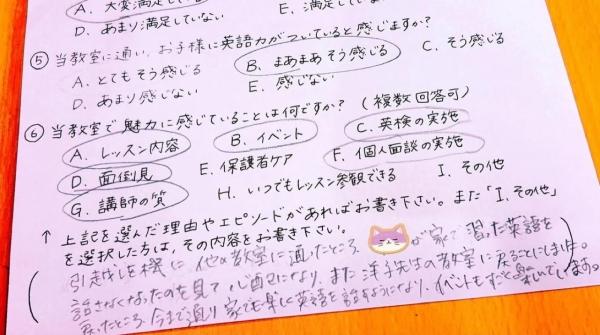 A. 大変満足している
D. あまり満足していない E. 満足していない
⑤ 当教室に通い、お子様に英語力がついていると感じますか?
A. とてもそう感じる B. まあまあそう感じる C. そう感じる
D. あまり感じない E. 感じない
⑥ 当教室で魅力に感じていることは何ですか? (複数回答可)
A. レッスン内容 B. イベント C. 英検の実施
D. 面倒見 E. 保護者ケア F. 個人面談の実施
G. 講師の質 H. いつでもレッスン参観できる I. その他
↑ 上記を選んだ理由やエピソードがあればお書き下さい。また「I. その他」
を選択した方は、その内容をお書き下さい。
引越しを機に他の教室に通ったところ、 が家で習った英語を
話さなくなったのを見て心配になり、また洋子先生の教室に戻ることにしました。
戻ったところ、今まで通り家でも楽しく英語を話すようになり、イベントも楽しんでいます。